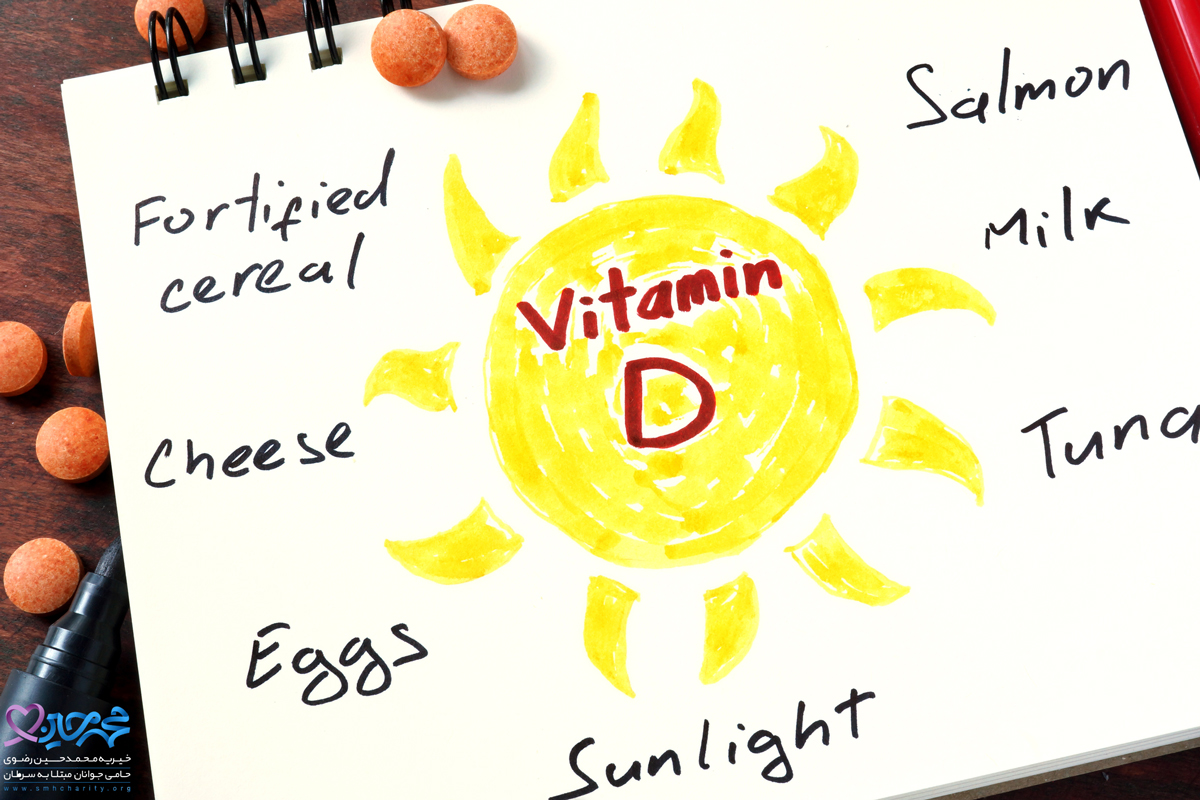 Salmon
Fortified
cereal
Milk
Vitamin
D
Cheese
Tuna
Eggs
Sunlight
محمدحسین
خیریه محمدحسین رضوی
حامی جوانان مبتلا به سرطان
www.smhcharity.org